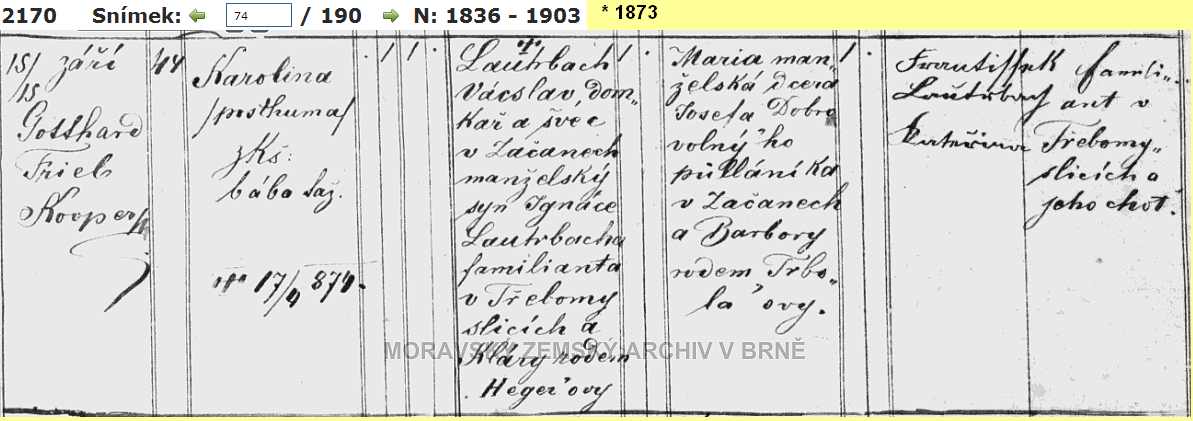 2170 Snímek: 74 / 190 N: 1836 - 1903 * 1873
15/ září
/15
Gotthard
Frieb
Kooper
44
Karolina
/posthuma/
zkš:
bába Saž.
17/4 874.
Lautrbach
Václav, dom„
kař a švec
v Začanech
manželský
syn Ignáce
Lautrbacha
familianta
v Třebomy
slicích a
Kláry rodem
Heger'ovy
Maria man„
želská dcera
Josefa Dobro
volný'ho
půllání ka
v Začanech
a Barbory
rodem Trbo„
la'ovy.
Frautissek famili„
Lautrbach ant v
Kateřina Třebomy„
slicích a
jeho choť.
MORAVSKÝ ZEMSKÝ ARCHIV V BRNĚ